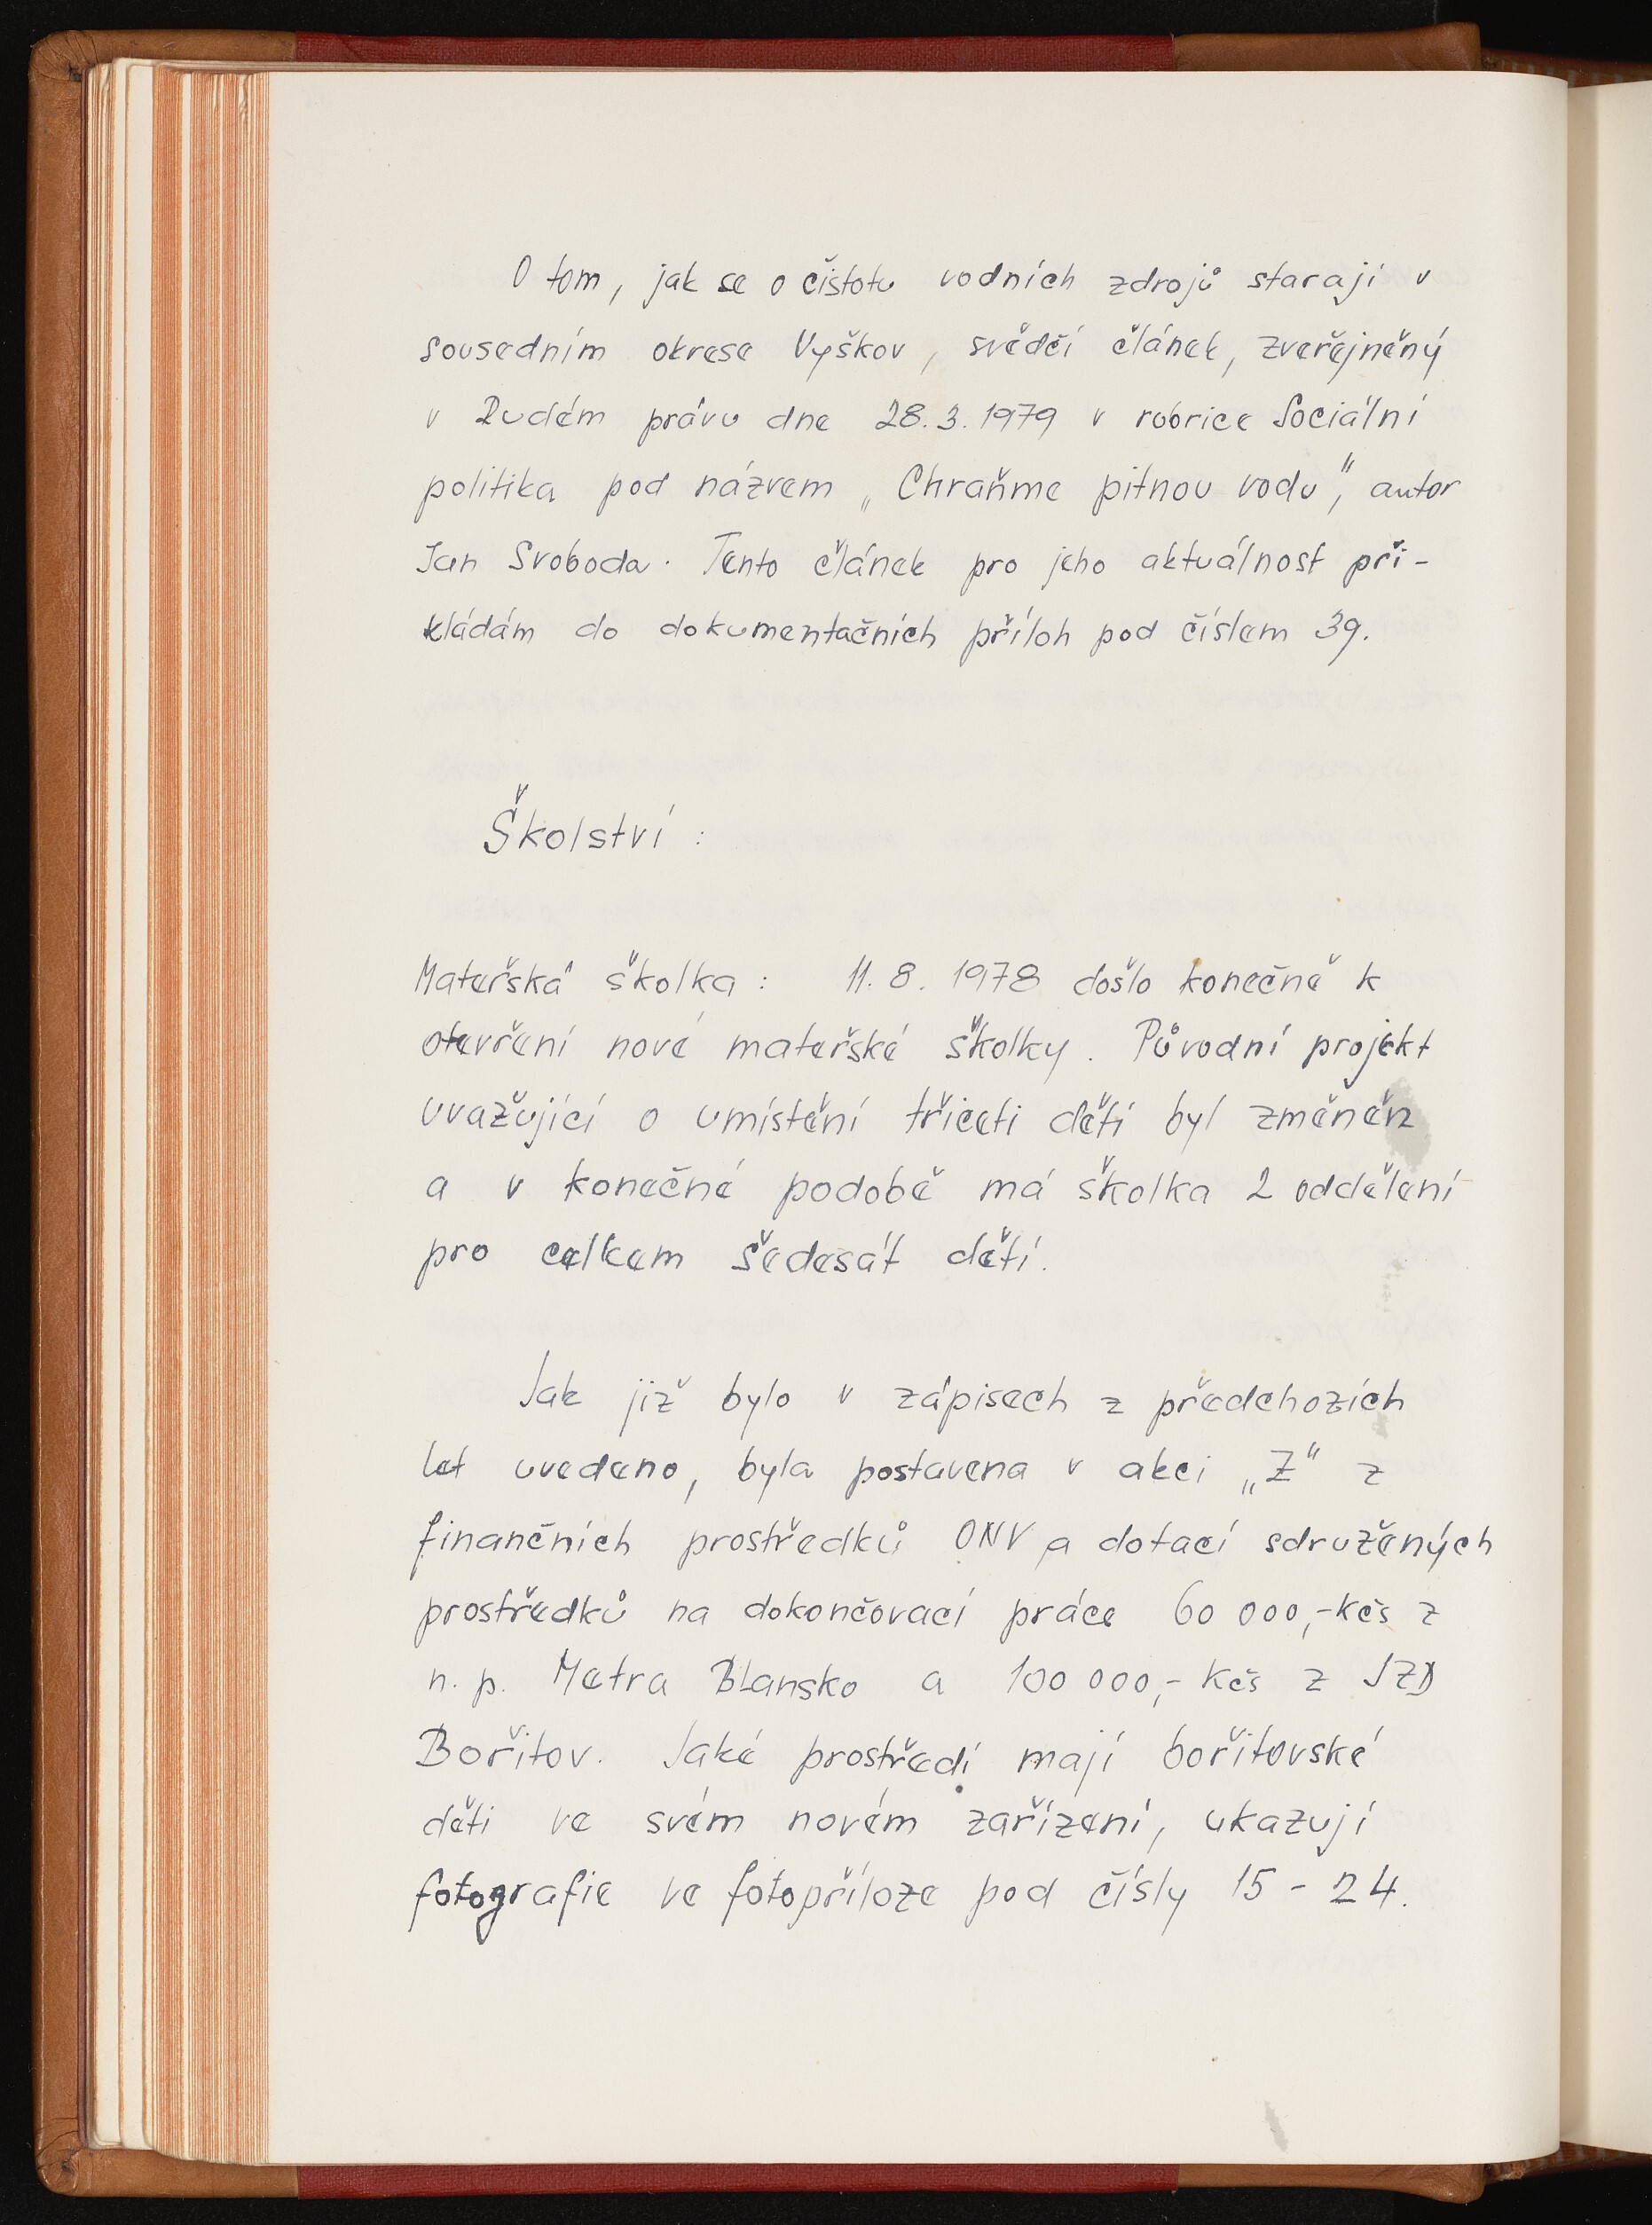 O tom, jak se o čistotu vodních zdrojů starají v
sousedním okrese Vyškov, svědčí článek, zveřejněný
v Rudém právu dne 28. 3. 1979 v rubrice Sociální
politika pod názvem „Chraňme pitnou vodu", autor
Jan Svoboda. Tento článek pro jeho aktuálnost při-
kládám do dokumentačních příloh pod číslem 39.
Školství :
Mateřská školka : 11. 8. 1978 došlo konečně k
otevření nové mateřské školky. Původní projekt
uvažující o umístění třiceti dětí byl změněn
a v konečné podobě má školka 2 oddělení
pro celkem šedesát dětí.
Jak již bylo v zápisech z předchozích
let uvedeno, byla postavena v akci „Z" z
finančních prostředků ONV a dotací sdružených
prostředků na dokončovací práce 60 000,- Kčs z
n. p. Metra Blansko a 100 000,- Kčs z JZD
Bořitov. Jaké prostředí mají bořitovské
děti ve svém novém zařízení, ukazují
fotografie ve fotopříloze pod čísly 15 - 24.